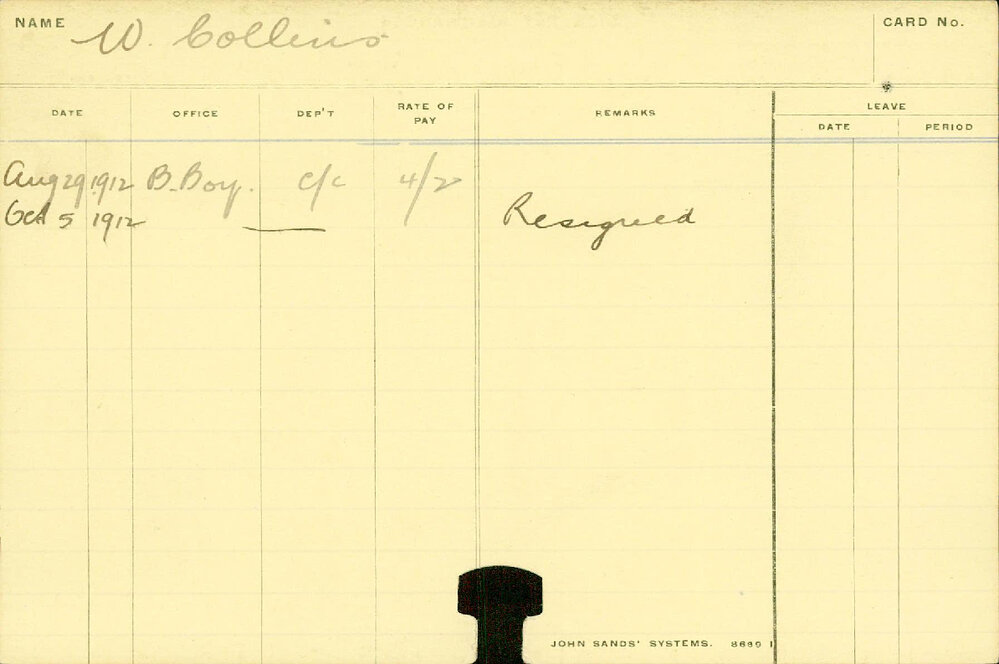 NAME W. Collins CARD No.
DATE OFFICE DEP'T RATE OF PAY REMARKS LEAVE
DATE PERIOD
Aug 29 1912 B. Boy. c/c 4/2
Oct 5 1912 Resigned
JOHN SANDS' SYSTEMS. 8689